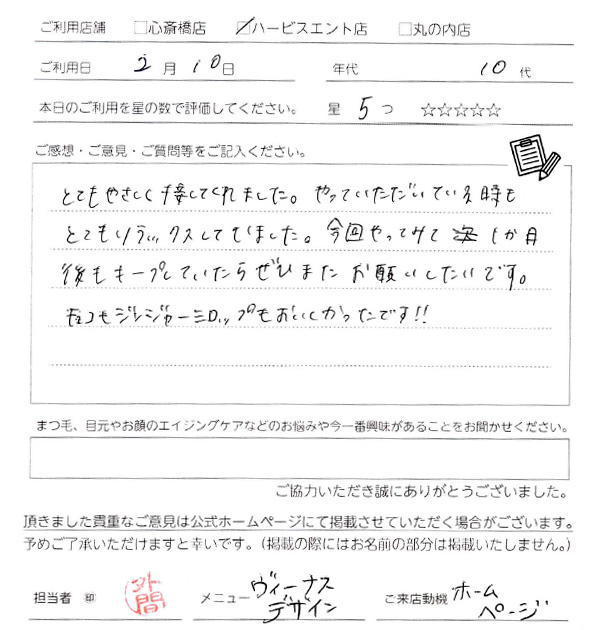 ご利用店舗 □心斎橋店 ☑ハービスエント店 □丸の内店
ご利用日 2月10日 年代 10代
本日のご利用を星の数で評価してください。 星 5つ ☆☆☆☆☆
ご感想・ご意見・ご質問等をご記入ください。
とてもやさしく接してくれました。やっていただいている時も
とてもリラックスしてもました。今回やってみて 1か月
後もキープしていたらぜひまたお願いしたいです。
チョコもジンジャーシロップもおいしかったです!!
まつ毛、目元やお顔のエイジングケアなどのお悩みや今一番興味があることをお聞かせください。
ご協力いただき誠にありがとうございました。
頂きました貴重なご意見は公式ホームページにて掲載させていただく場合がございます。
予めご了承いただけますと幸いです。(掲載の際にはお名前の部分は掲載いたしません。)
担当者 ㊞ 外間 メニュー ヴィーナスデザイン ご来店動機 ホームページ